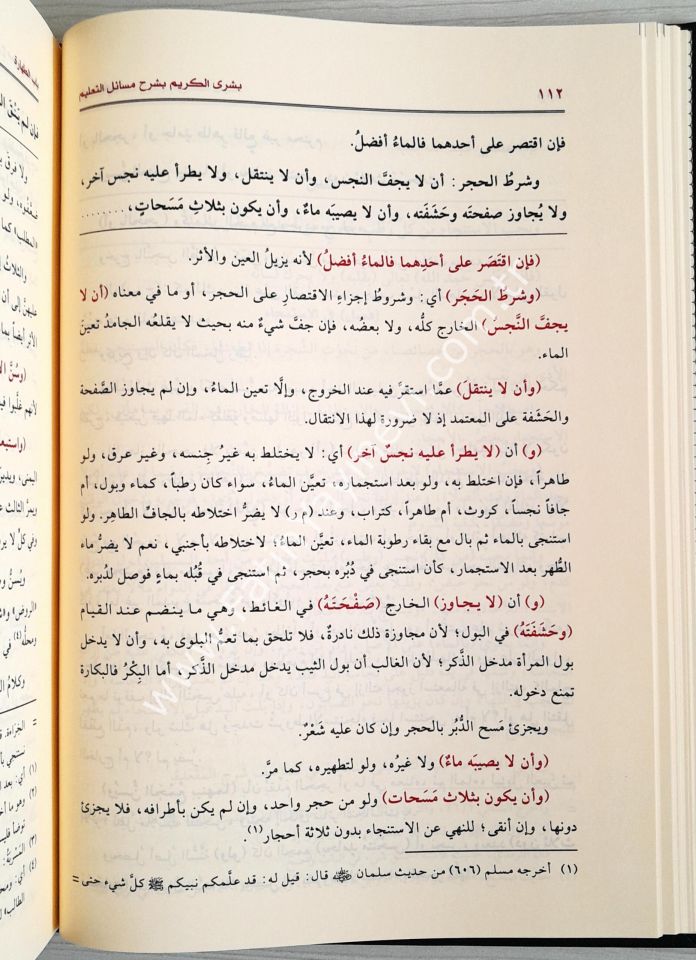 ١١٢
بشرى الكريم بشرح مسائل التعليم
فإن اقتصر على أحدهما فالماءُ أفضلُ.
وشرطُ الحجر: أن لا يجفَّ النجس، وأن لا ينتقل، ولا يطرأ عليه نجس آخر،
ولا يُجاوز صفحتَه وحَشَفَته، وأن لا يصيبَه ماءٌ، وأن يكون بثلاثِ مَسَحاتٍ، ........
(فإن اقْتَصَر على أحدِهما فالماءُ أفضلُ) لأنه يزيلُ العين والأثر.
(وشرطُ الحَجَر) أي: وشروطُ إجزاءِ الاقتصارِ على الحجر، أو ما في معناه (أن لا
يجفَّ النَّجسُ) الخارج كلُّه، ولا بعضُه، فإن جفَّ شيءٌ منه بحيث لا يقلعُه الجامدُ تعينَ
الماء.
(وأن لا ينتقلَ) عمَّا استقرَّ فيه عند الخروج، وإلَّا تعين الماءُ، وإن لم يجاوز الصَّفحة
والحَشَفة على المعتمد إذ لا ضرورة لهذا الانتقال.
(و) أن (لا يطرأ عليه نجسٌ آخر) أي: لا يختلط به غيرُ جِنسه، وغير عرق، ولو
طاهراً، فإن اختلط به، ولو بعد استجماره، تعيَّن الماءُ، سواء كان رطباً، كماء وبول، أم
جافاً نجساً، كروث، أم طاهراً، كتراب، وعند (م ر) لا يضرُّ اختلاطه بالجافِّ الطاهر. ولو
استنجى بالماء ثم بال مع بقاء رطوبة الماء، تعيَّن الماءُ؛ لاختلاطه بأجنبي، نعم لا يضرُّ ماء
الطُّهر بعد الاستجمار، كأن استنجى في دُبُره بحجر، ثم استنجى في قُبُله بماءٍ فوصل لدُبره.
(و) أن (لا يجاوز) الخارج (صَفْحَتَهُ) في الغائط، وهي ما ينضم عند القيام
(وحَشَفَتَهُ) في البول؛ لأن مجاوزة ذلك نادرةٌ، فلا تلحق بما تعمُّ البلوى به، وأن لا يدخل
بول المرأة مدخل الذَّكر؛ لأن الغالب أن بول الثيب يدخل مدخل الذَّكر، أما البِكْرُ فالبكارة
تمنع دخوله.
ويجزئ مَسح الدُّبُر بالحجر وإن كان عليه شَعْرٌ.
(وأن لا يصيبَه ماءٌ) ولا غيرُه، ولو لتطهيره، كما مرَّ.
(وأن يكون بثلاث مَسَحات) ولو من حجر واحد، وإن لم يكن بأطرافه، فلا يجزئ
دونها، وإن أنقى؛ للنهي عن الاستنجاء بدون ثلاثة أحجار(١).
(١) أخرجه مسلم (٦٠٦) من حديث سلمان ﷺ قال: قيل له: قد علَّمكم نبيكم ﷺ كلَّ شيء حتى =